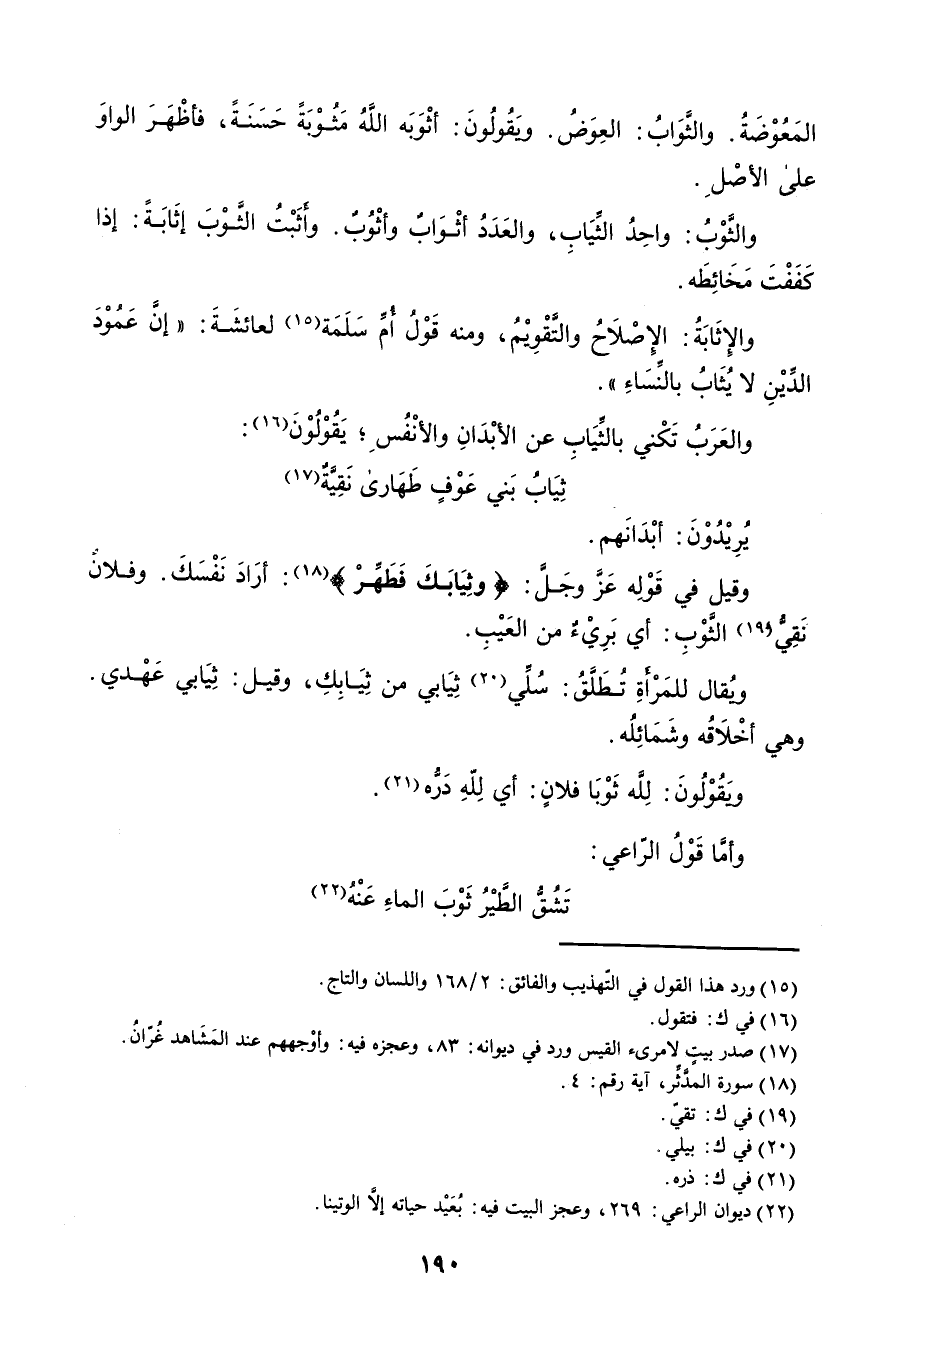 المَعُوْضَةُ. والثَّوَابُ: العِوَضُ. ويَقُولُونَ: أثْوَبَه اللَّهُ مَثُـوْبَةً حَسَنَـةً، فأظْهَـرَ الواوَ
علىٰ الأصْلِ.
والثَّوْبُ: واحِدُ الثِّيَابِ، والعَدَدُ أثْـوَابٌ وأثْوُبٌ. وأَثَبْتُ الثَّـوْبَ إثَابَـةً: إذا
كَفَفْتَ مَخَائِطَه.
والإِثَابَةُ: الإِصْلَاحُ والتَّقْوِيْمُ، ومنه قَوْلُ أُمِّ سَلَمَة(١٥) لعائشَةَ: « إنَّ عَمُوْدَ
الدِّيْنِ لا يُثَابُ بالنِّسَاءِ ».
والعَرَبُ تَكْني بالثِّيَابِ عن الأبْدَانِ والأنْفُسِ؛ يَقُوْلُوْنَ(١٦):
ثِيَابُ بَني عَوْفٍ طَهَارىٰ نَقِيَّةٌ(١٧)
يُرِيْدُوْنَ: أبْدَانَهم.
وقيل في قَوْلِه عَزَّ وجَـلَّ: ﴿ وثِيَابَـكَ فَطَهِّـرْ ﴾(١٨): أرَادَ نَفْسَكَ. وفـلانٌ
نَقِيُّ(١٩) الثَّوْبِ: أي بَرِيْءٌ من العَيْبِ.
ويُقال للمَرْأَةِ تُـطَلَّقُ: سُلِّي(٢٠) ثِيَابي من ثِيَـابِكِ، وقيـل: ثِيَابي عَهْـدي.
وهي أخْلَاقُه وشَمَائِلُه.
ويَقُوْلُونَ: لِلَّه ثَوْبَا فلانٍ: أي لِلّهِ دَرُّه(٢١).
وأمَّا قَوْلُ الرّاعي:
تَشُقُّ الطَّيْرُ ثَوْبَ الماءِ عَنْهُ(٢٢)
(١٥) ورد هذا القول في التّهذيب والفائق: ١٦٨/٢ واللسان والتاج.
(١٦) في ك: فتقول.
(١٧) صدر بيتٍ لامرىء القيس ورد في ديوانه: ٨٣، وعجزه فيه: وأوْجههم عند المَشَاهد غُرّانُ.
(١٨) سورة المدَّثِّر، آية رقم: ٤.
(١٩) في ك: تقيّ.
(٢٠) في ك: بيلي.
(٢١) في ك: ذره.
(٢٢) ديوان الراعي: ٢٦٩، وعجز البيت فيه: بُعَيْد حياته إلاَّ الوتينا.
١٩٠